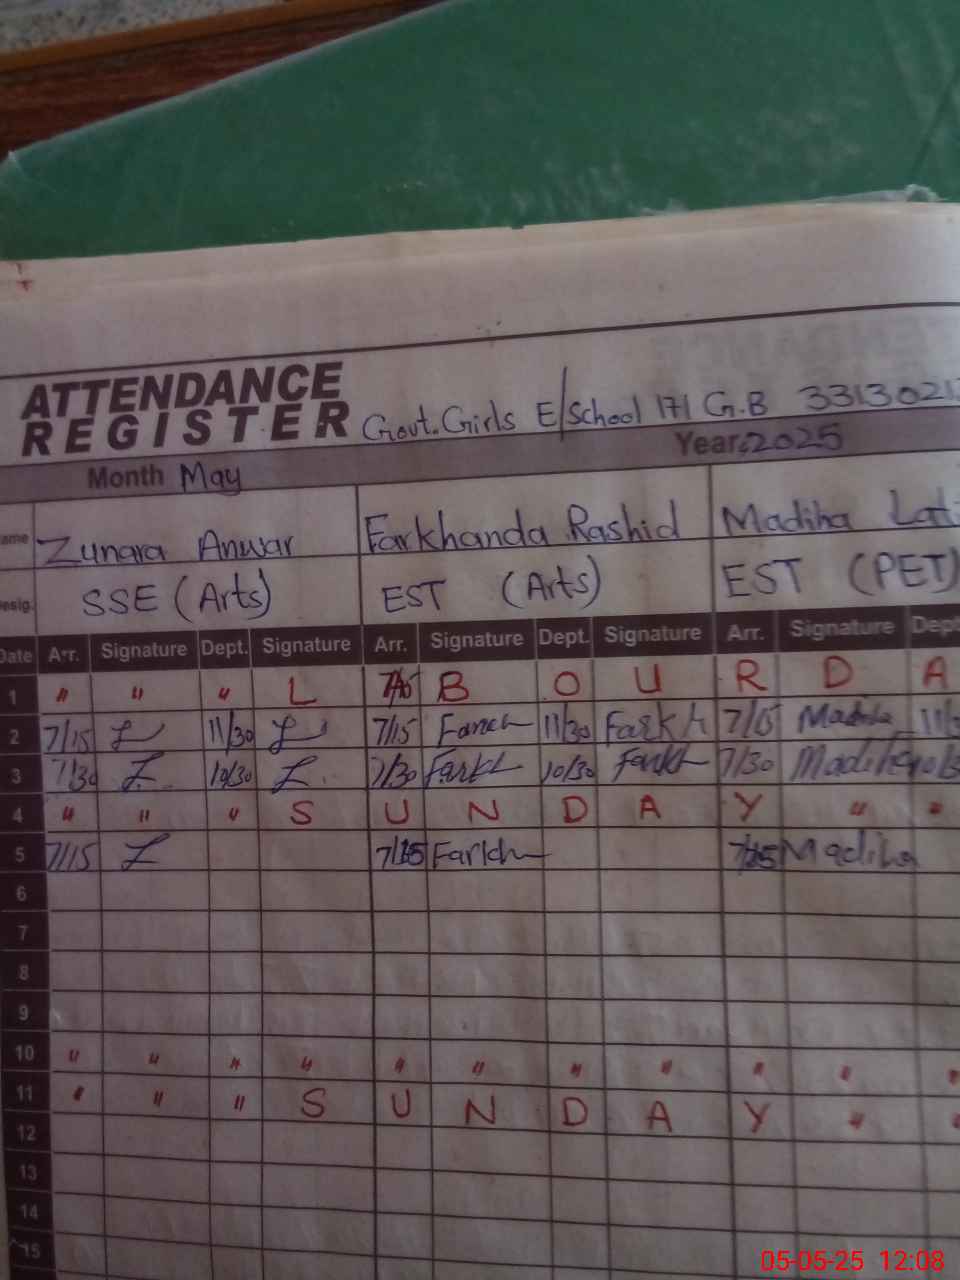 ATTENDANCE
REGISTER Govt. Girls E/School 171 G.B 3313021
Month May Year: 2025
ame Zunara Anwar Farkhanda Rashid Madiha Lati
esig. SSE (Arts) EST (Arts) EST (PET)
Date Arr. Signature Dept. Signature Arr. Signature Dept. Signature Arr. Signature Dept
1 " " " L B O U R D A
2 7/15 11/30 7/15 11/30 Farkh 7/15 Madiha 11/3
3 7/30 Z. 10/30 Z. 7/30 Farkh 10/30 Farkh 7/30 Madiha 10/3
4 " " " S U N D A Y " "
5 7/15 Z Farkh Madiha
6
7
8
9
10 " " " " " " " " " " "
11 " " " S U N D A Y " "
12
13
14
15
05-05-25 12:08